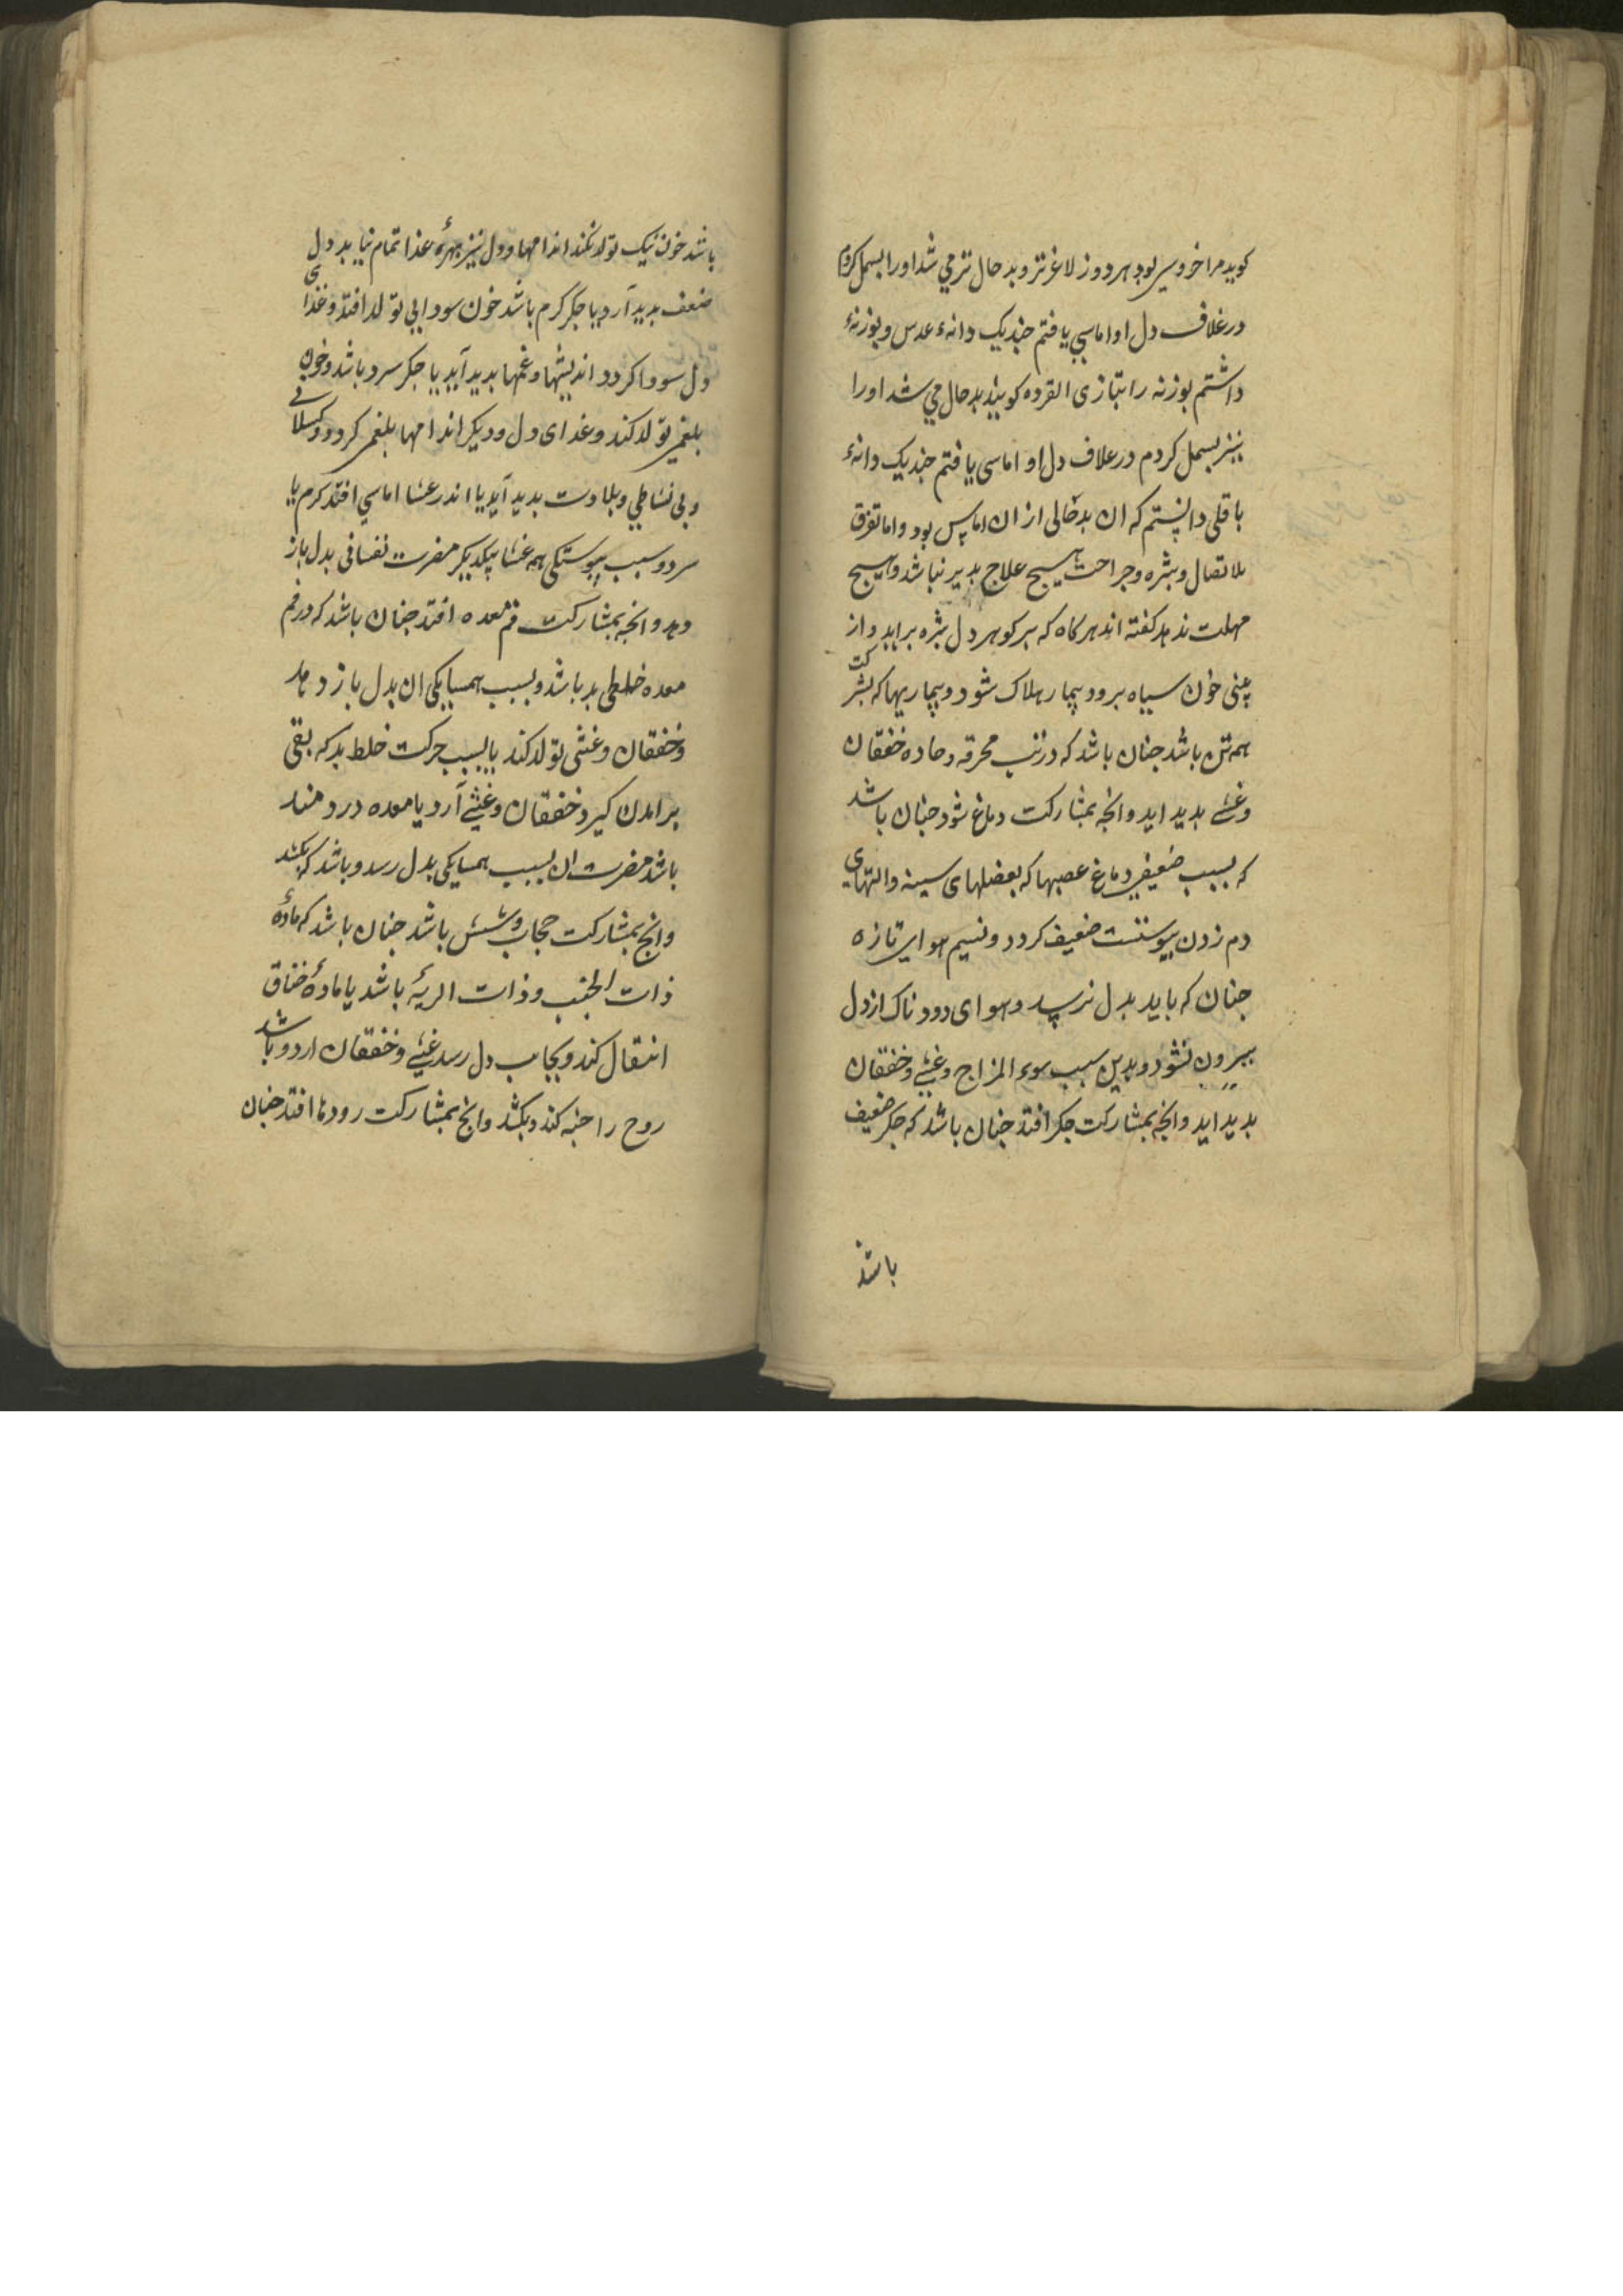 کوید مرا خروسی بود هر روز لاغرتر و بد حال تر می شد اورا بسمل کردم
در غلاف دل او اماسی یافتم چند یک دانهٔ عدس و بوزنهٔ
داشتم بوزنه را بتازی القرده کویند بد حال می شد اورا
نیز بسمل کردم در غلاف دل او اماسی یافتم چند یک دانهٔ
باقلی دانستم که ان بد حالی از ان اماس بود و اما تفرق
الاتصال و بثره و جراحت هیچ علاج بدیر نباشد و هیچ
مهلت ندهد کفته اند هر کاه که بر کوهر دل بثره براید و از
بینی خون سیاه برود بیمار هلاک شود و بیماریها که بشرکت
همه تن باشد جنان باشد که در تب محرقه و حاده خفقان
و غشی بدید اید و انچه بمشارکت دماغ شود جنان باشد
که بسبب ضعیفی دماغ عصبها که بعضلهای سینه و التهای
دم زدن پیوستست ضعیف کردد و نسیم هوای تازه
جنان که باید بدل نرسد و هوای دودناک از دل
بیرون نشود و بدین سبب سوء المزاج و غشی و خفقان
بدید اید و انچه بمشارکت جکر افتد جنان باشد که جکر ضعیف
باشد
باشد خون نیک تولد نکند اندامها و دل نیز بهرهٔ غذا تمام نیابد دل
ضعف بدید آرد یا جکر کرم باشد خون سودایی تولد افتد و غذای
دل سودا کردد اندیشها و غمها بدید آید یا جکر سرد باشد و خون
بلغمی تولد کند و غذای دل و دیکر اندامها بلغمی کردد و کسلانی
و بی نشاطی و بلادت بدید آید یا اندر غشا اماسی افتد کرم یا
سرد و سبب پیوستکی همه غشا بیکدیکر مضرت نفسانی بدل باز
دهد و انچه بمشارکت فم معده افتد جنان باشد که در فم
معده خلطی بد باشد و بسبب همسایکی ان بدل باز دهد
و خفقان و غشی تولد کند یا بسبب حرکت خلط بد که بقی
برامدن کیرد خفقان و غشی آرد یا معده دردمند
باشد مضرت ان بسبب همسایکی بدل رسد و باشد که بکشد
و انچ بمشارکت حجاب و شش باشد جنان باشد که مادهٔ
ذات الجنب و ذات الریهٔ باشد یا مادهٔ خناق
انتقال کند و بجانب دل رسد غشی و خفقان ارد و باشد
روح را خبه کند و بکشد و انچ بمشارکت رودها افتد جنان